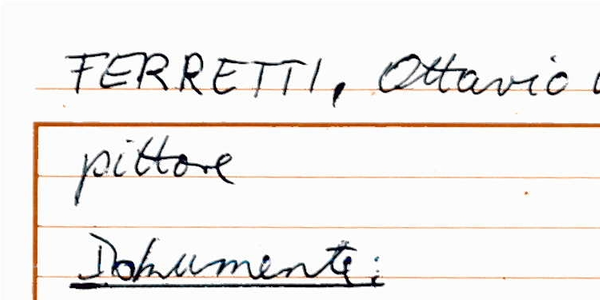 FERRETTI, Ottavio
pittore
Dokumente: